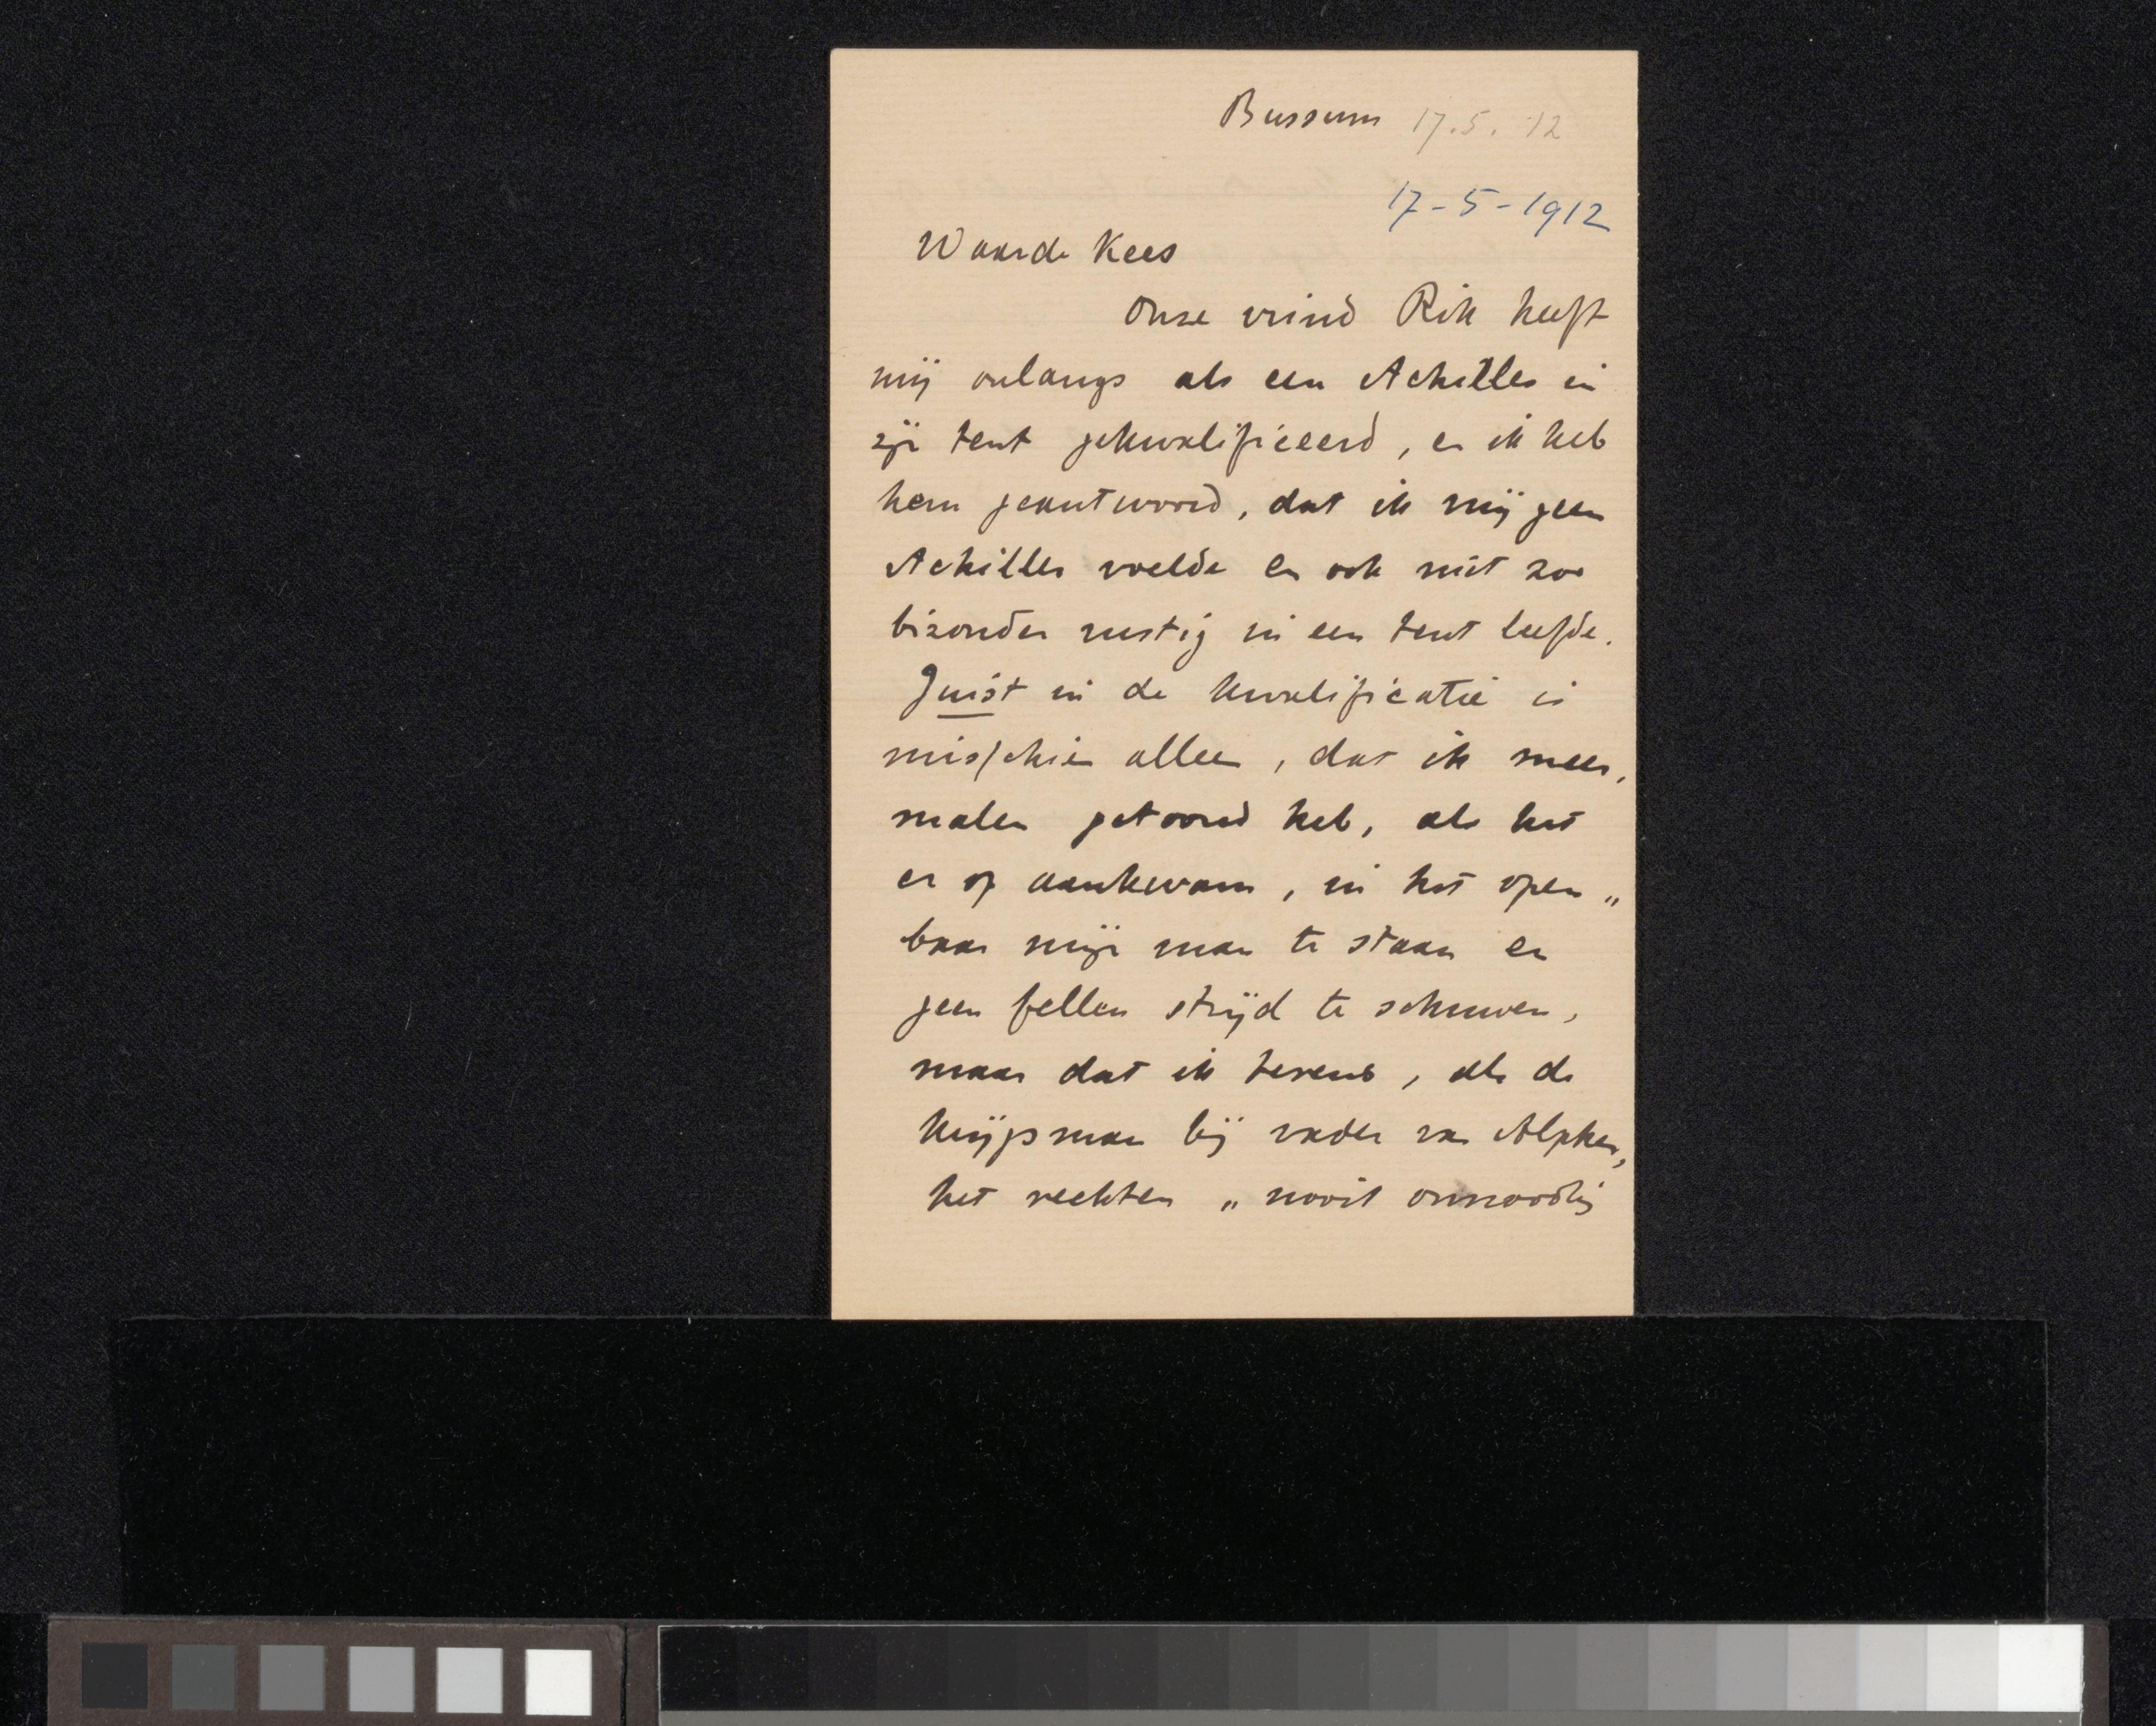 Bussum 17.5.'12
17-5-1912
Waarde Kees
Onze vriend Rik heeft
mij onlangs als een Achilles in
zijn tent gekwalificeerd, en ik heb
hem geantwoord, dat ik mij geen
Achilles voelde en ook niet zoo
bizonder rustig in een tent leefde.
Juist in de kwalificatie is
misschien alleen, dat ik meer,
malen getoond heb, als het
er op aankwam, in het open„
baar mijn man te staan en
geen fellen strijd te schuwen,
maar dat ik tevens, als de
krijgsman bij vader van Alphen,
het vechten „nooit onnoodig